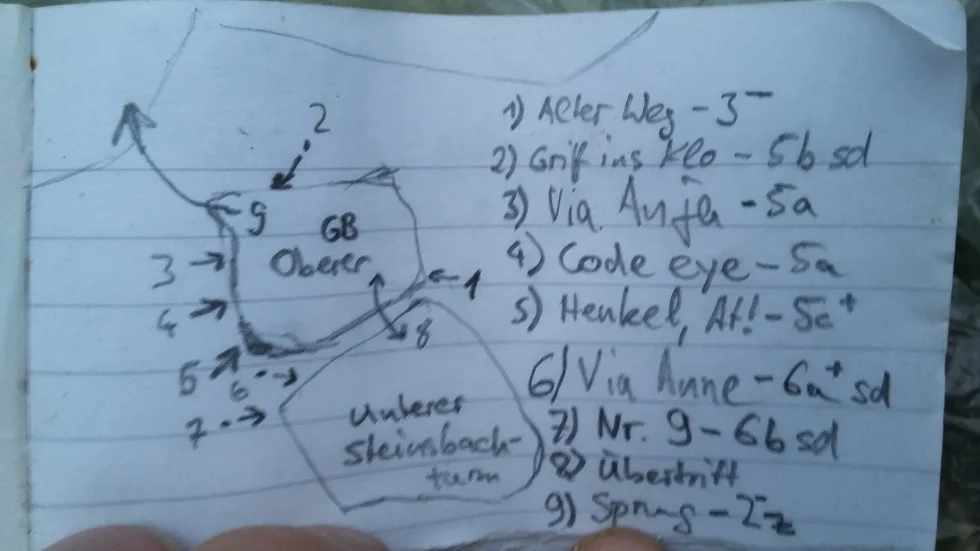 2
9
GB
Oberer
3
4
5
6
7
1
8
Unterer
Steinsbach-
turm
1) Alter Weg - 3-
2) Grif ins Klo - 5b sd
3) Via - 5a
4) Code eye - 5a
5) Henkel, - 5c+
6) Via Anne - 6a+ sd
7) Nr. 9 - 6b sd
8) Übertritt
9) Sprung - 2-